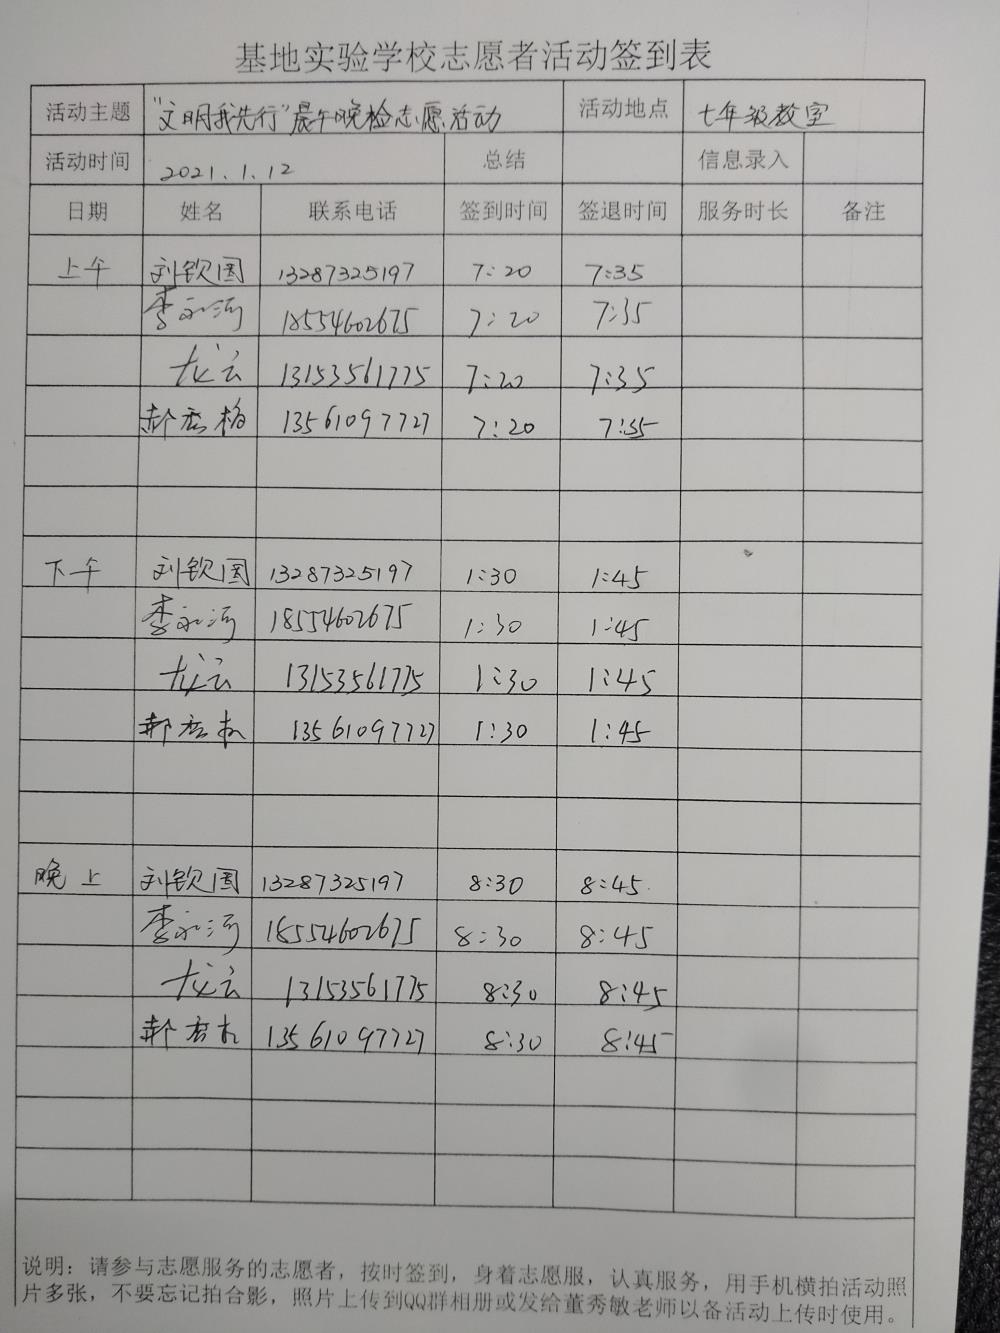 基地实验学校志愿者活动签到表
活动主题 "文明我先行"晨午晚检志愿活动 活动地点 七年级教室
活动时间 2021.1.12 总结 信息录入
日期 姓名 联系电话 签到时间 签退时间 服务时长 备注
上午 刘钦国 13287325197 7:20 7:35
李永河 18554602675 7:20 7:35
龙云 13153561775 7:20 7:35
郝 13561097727 7:20 7:35
下午 刘钦国 13287325197 1:30 1:45
李永河 18554602675 1:30 1:45
龙云 13153561775 1:30 1:45
郝 13561097727 1:30 1:45
晚上 刘钦国 13287325197 8:30 8:45
李永河 18554602675 8:30 8:45
龙云 13153561775 8:30 8:45
郝 13561097727 8:30 8:45
说明：请参与志愿服务的志愿者，按时签到，身着志愿服，认真服务，用手机横拍活动照
片多张，不要忘记拍合影，照片上传到QQ群相册或发给董秀敏老师以备活动上传时使用。